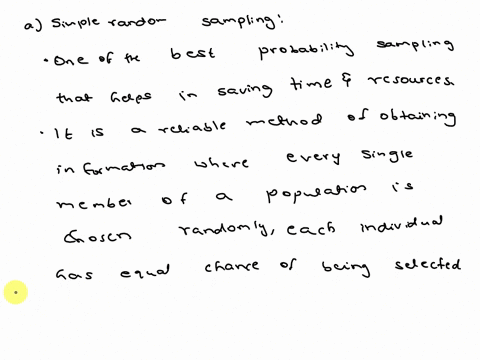 a) Simple random sampling:
• One of the best probability sampling
that helps in saving time & resources
• It is a reliable method of obtaining
information where every single
member of a population is
chosen randomly, each individual
has equal chance of being selected